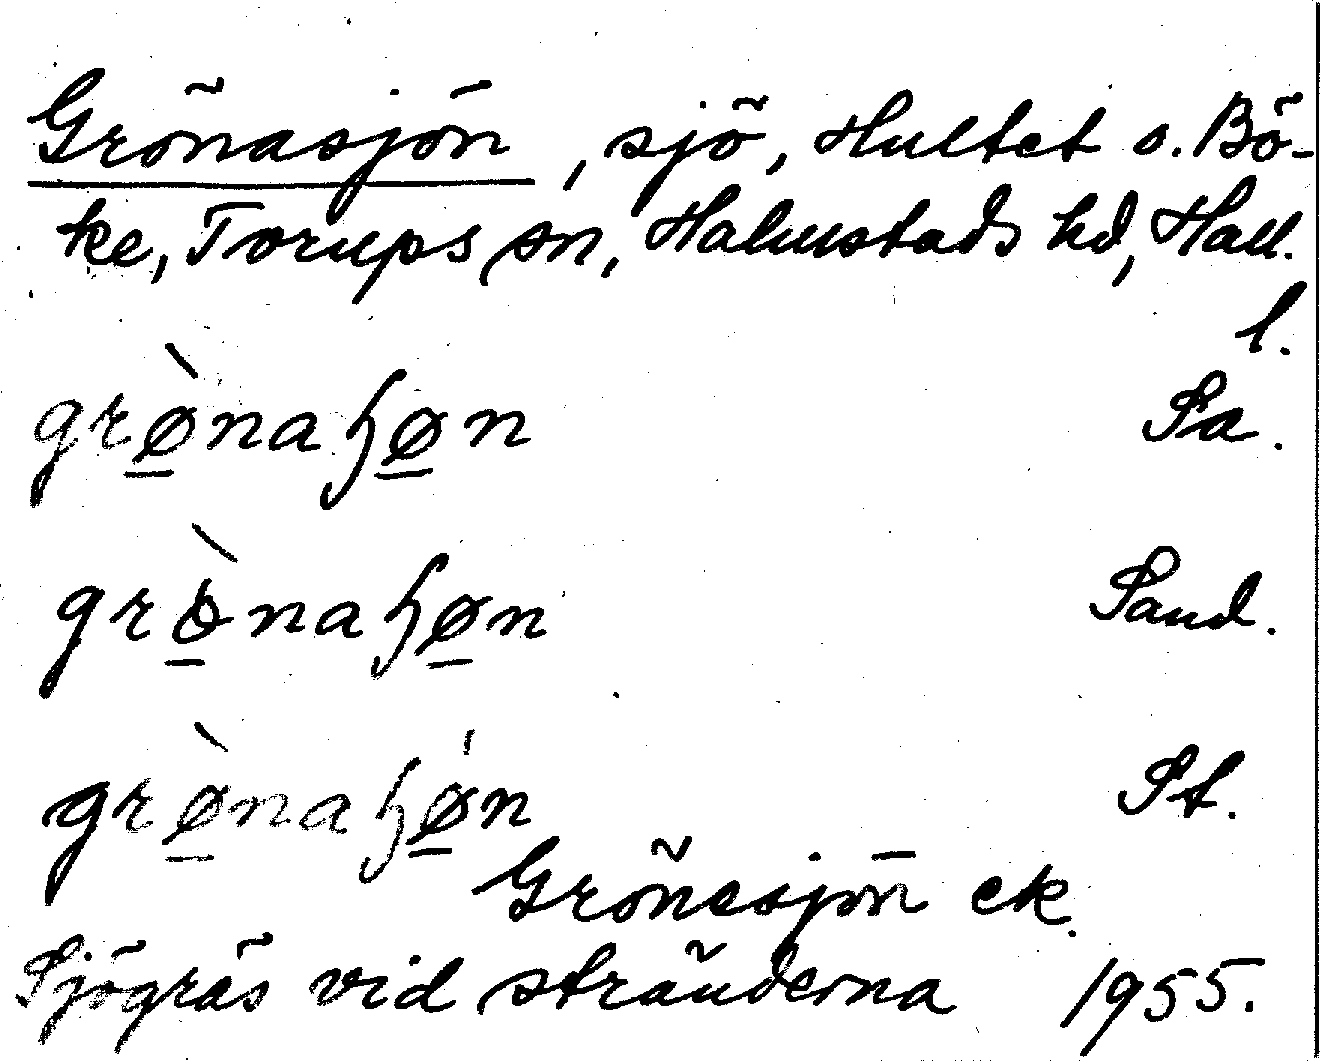 Grönasjön, sjö, Hultet o. Bö-
ke, Torups sn, Halmstads hd, Hall.
l.
grø̲̀naɧø̲n Sa.
grò̲naɧø̲n Sand.
grø̲̀naɧǿ̲n St.
Grönesjön ek.
Sjögräs vid stränderna 1955.